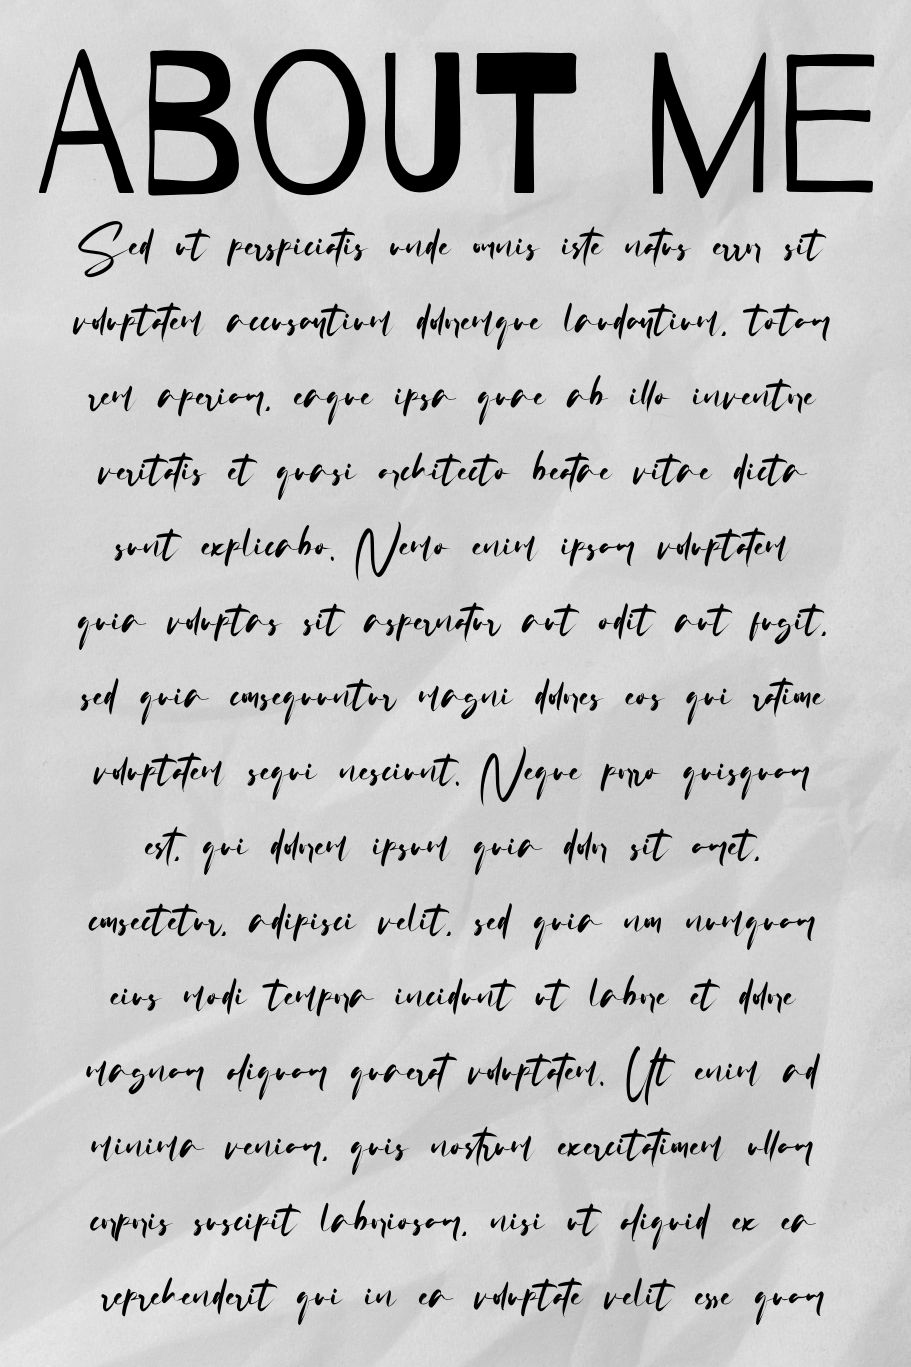 ABOUT ME
Sed ut perspiciatis unde omnis iste natus error sit
voluptatem accusantium doloremque laudantium, totam
rem aperiam, eaque ipsa quae ab illo inventore
veritatis et quasi architecto beatae vitae dicta
sunt explicabo. Nemo enim ipsam voluptatem
quia voluptas sit aspernatur aut odit aut fugit,
sed quia consequuntur magni dolores eos qui ratione
voluptatem sequi nesciunt. Neque porro quisquam
est, qui dolorem ipsum quia dolor sit amet,
consectetur, adipisci velit, sed quia non numquam
eius modi tempora incidunt ut labore et dolore
magnam aliquam quaerat voluptatem. Ut enim ad
minima veniam, quis nostrum exercitationem ullam
corporis suscipit laboriosam, nisi ut aliquid ex ea
reprehenderit qui in ea voluptate velit esse quam